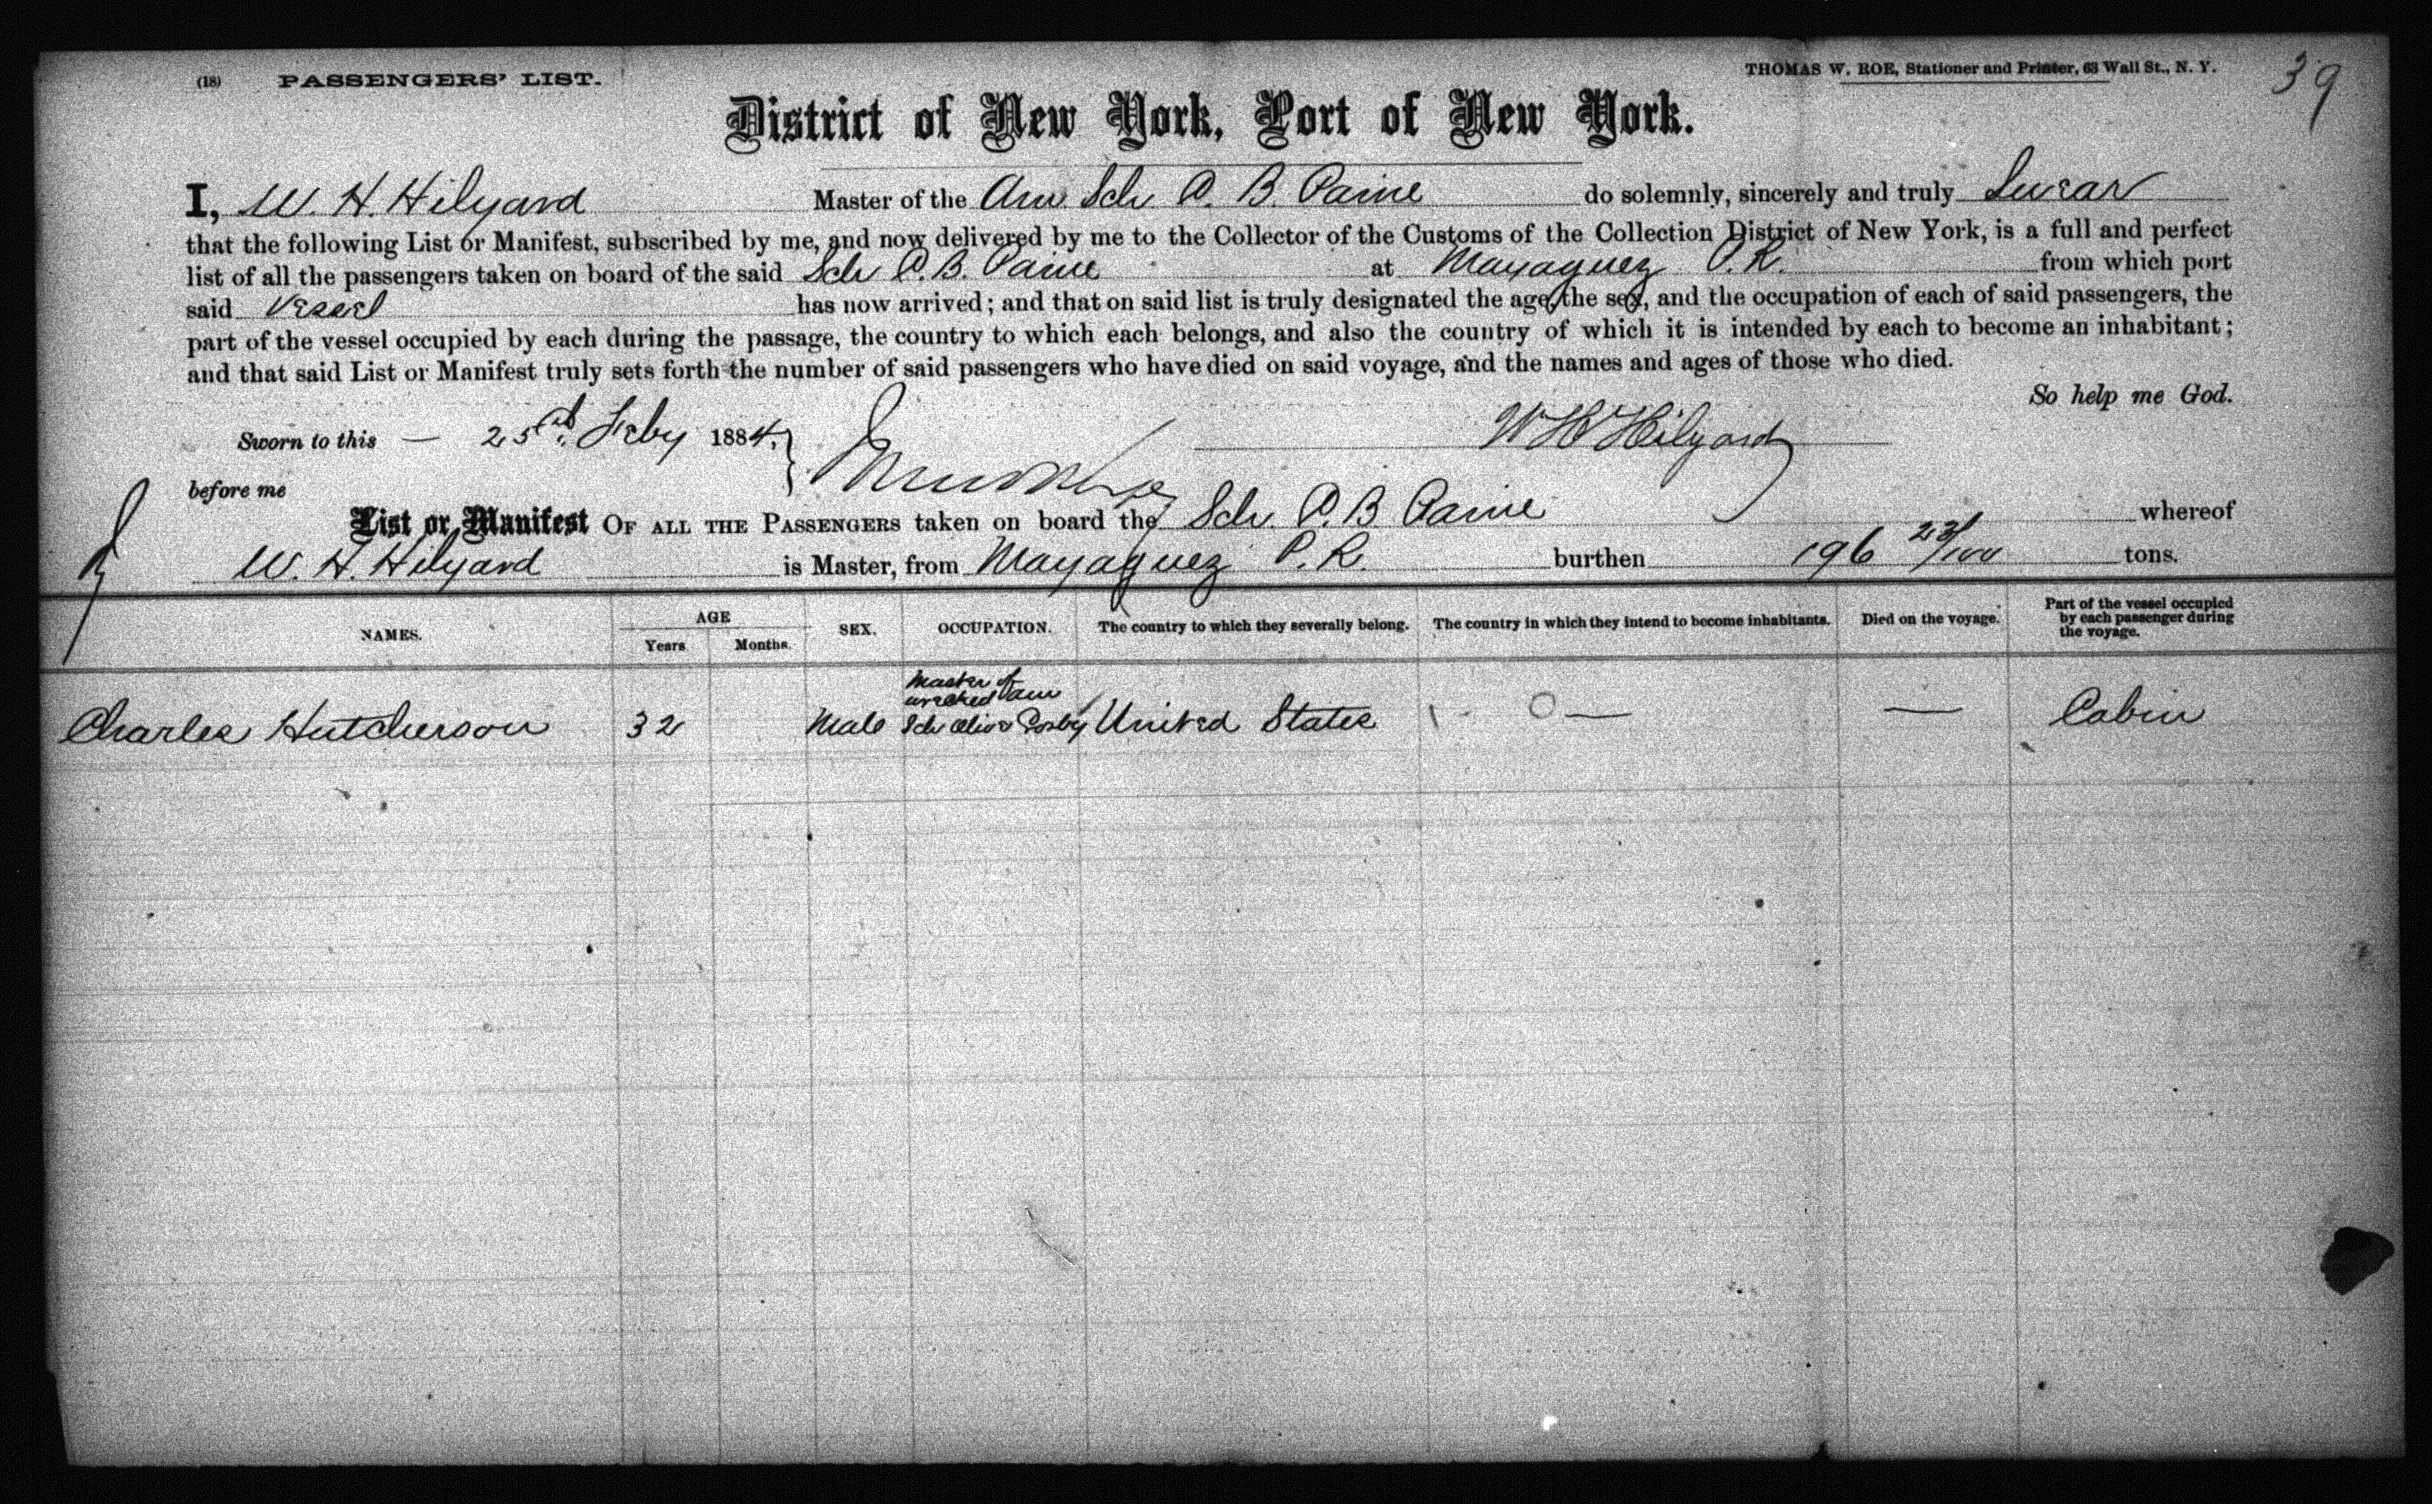 (18) PASSENGERS' LIST. THOMAS W. ROE, Stationer and Printer, 63 Wall St., N. Y. 39
District of New York, Port of New York.
I, W. H. Hilyard Master of the Am Sch A. B. Paine do solemnly, sincerely and truly Swear
that the following List or Manifest, subscribed by me, and now delivered by me to the Collector of the Customs of the Collection District of New York, is a full and perfect
list of all the passengers taken on board of the said Sch A. B. Paine at Mayaguez P.R. from which port
said Vessel has now arrived; and that on said list is truly designated the age, the sex, and the occupation of each of said passengers, the
part of the vessel occupied by each during the passage, the country to which each belongs, and also the country of which it is intended by each to become an inhabitant;
and that said List or Manifest truly sets forth the number of said passengers who have died on said voyage, and the names and ages of those who died.
So help me God.
Sworn to this — 25th Feby 1884, W H Hilyard
before me
List or Manifest OF ALL THE PASSENGERS taken on board the Sch A. B Paine whereof
W. H. Hilyard is Master, from Mayaguez P. R. burthen 196 23/100 tons.
NAMES. AGE Years Months. SEX. OCCUPATION. The country to which they severally belong. The country in which they intend to become inhabitants. Died on the voyage. Part of the vessel occupied by each passenger during the voyage.
Master of
wrecked Am
Charles Hutcherson 32 Male Sch Olive Crosby United States 1 - O — — Cabin